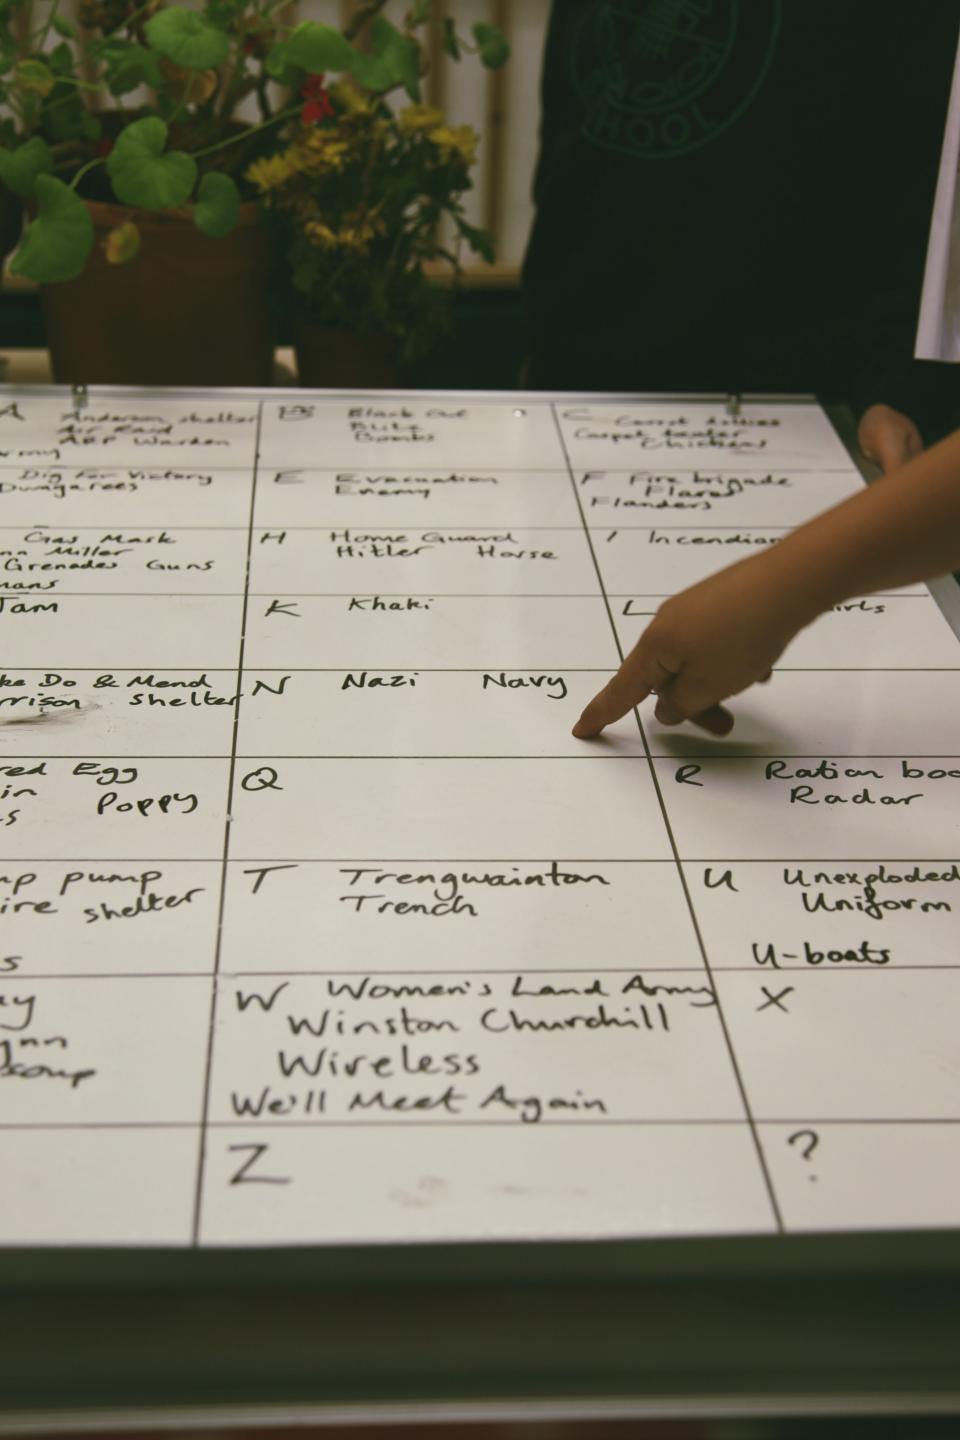 HOOL
A Anderson shelter
Air Raid
ARP Warden
rmy
B Black Out
Blitz
Bombs
C Carrot
Carpet beater
Chickens
Dig For Victory
Dungarees
E Evacuation
Enemy
F Fire brigade
Flares
Flanders
Gas Mask
nn Miller
Grenades Guns
mans
H Home Guard
Hitler Horse
I Incendiar
Jam
K Khaki
L irls
ke Do & Mend
rrison shelter
N Nazi Navy
red Egg
in
s Poppy
Q
R Ration boo
Radar
mp pump
ire shelter
s
T Trengwainton
Trench
U Unexploded
Uniform
U-boats
ay
ynn
soup
W Women's Land Army
Winston Churchill
Wireless
We'll Meet Again
X
Z
?